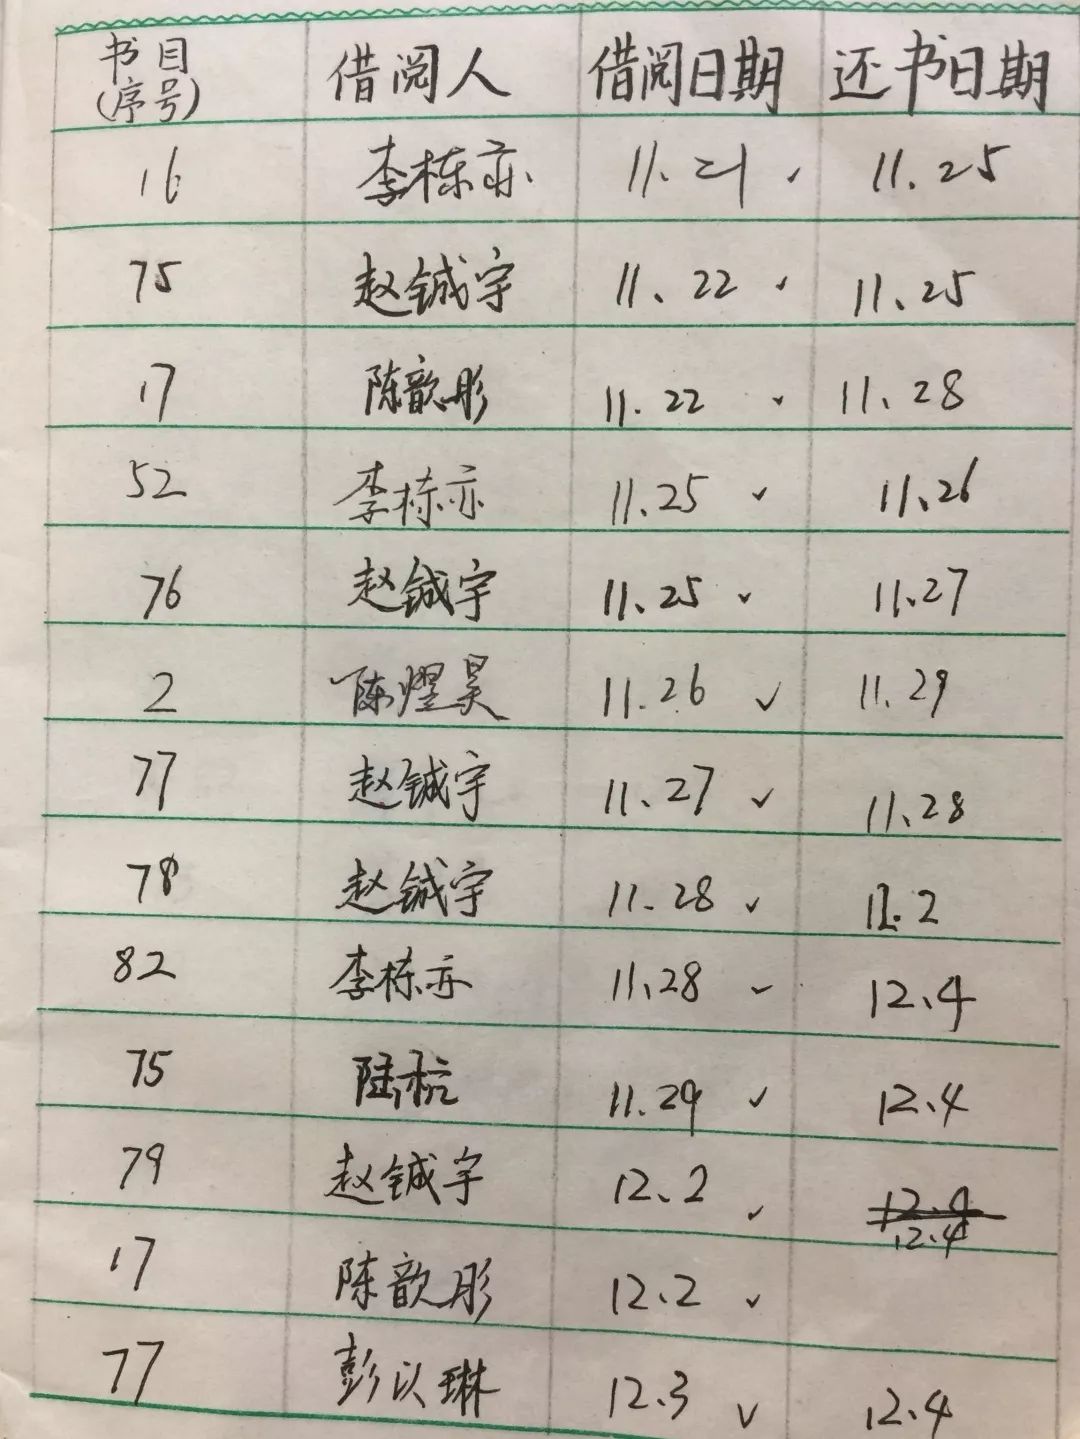 书目(序号) 借阅人 借阅日期 还书日期
16 李栋亦 11.21 ✓ 11.25
75 赵铖宇 11.22 ✓ 11.25
17 陈歆彤 11.22 ✓ 11.28
52 李栋亦 11.25 ✓ 11.26
76 赵铖宇 11.25 ✓ 11.27
2 陈煜昊 11.26 ✓ 11.29
77 赵铖宇 11.27 ✓ 11.28
78 赵铖宇 11.28 ✓ 12.2
82 李栋亦 11.28 ✓ 12.4
75 陆杭 11.29 ✓ 12.4
79 赵铖宇 12.2 ✓ 12.4
12.4
17 陈歆彤 12.2 ✓
77 彭以琳 12.3 ✓ 12.4